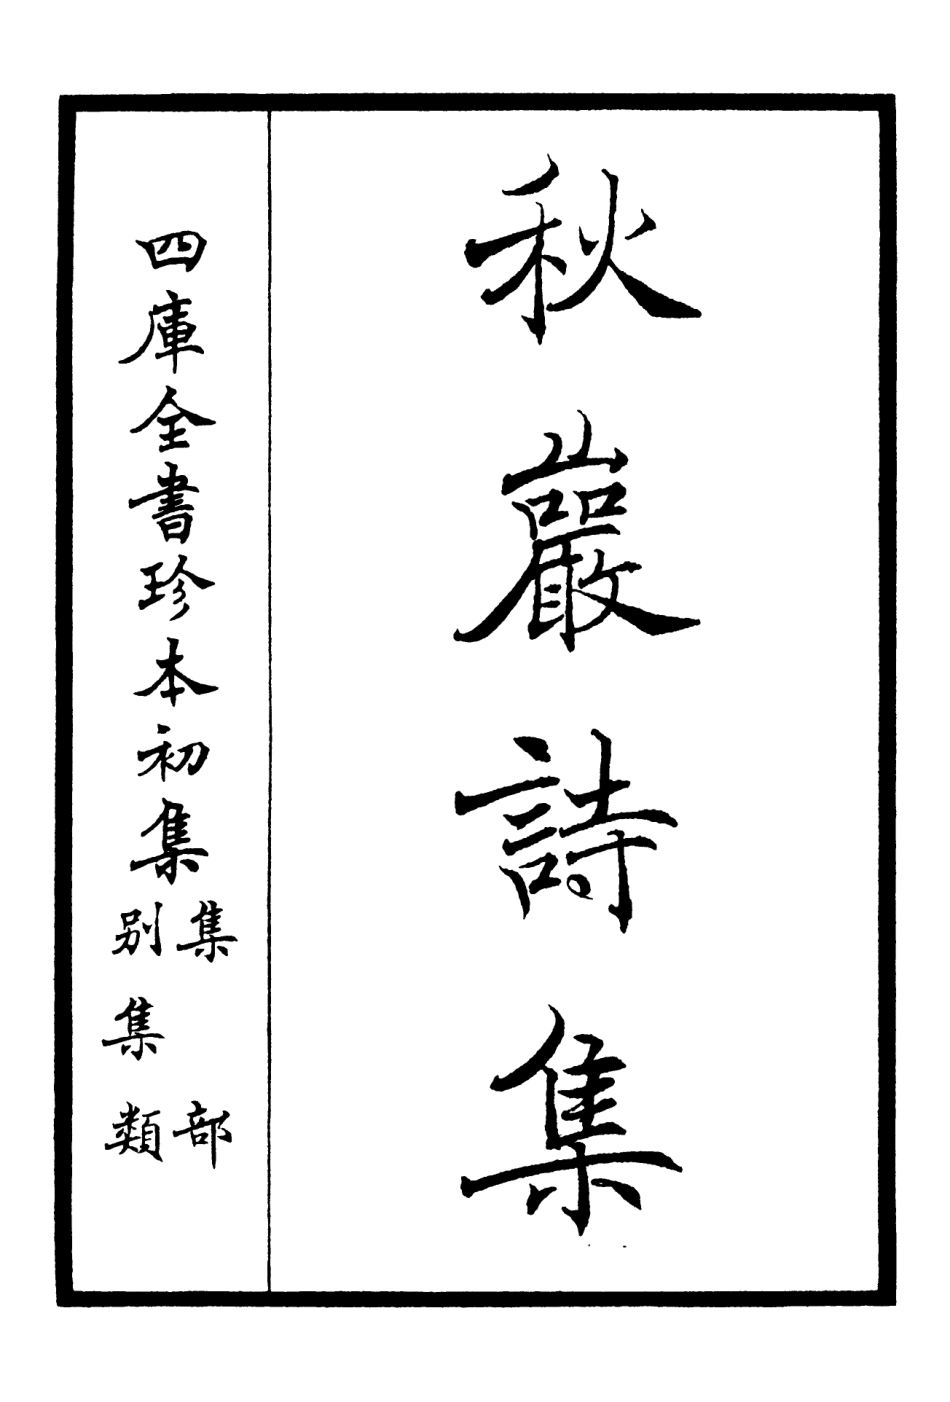 秋巖詩集
四庫全書珍本初集
集部
別集類